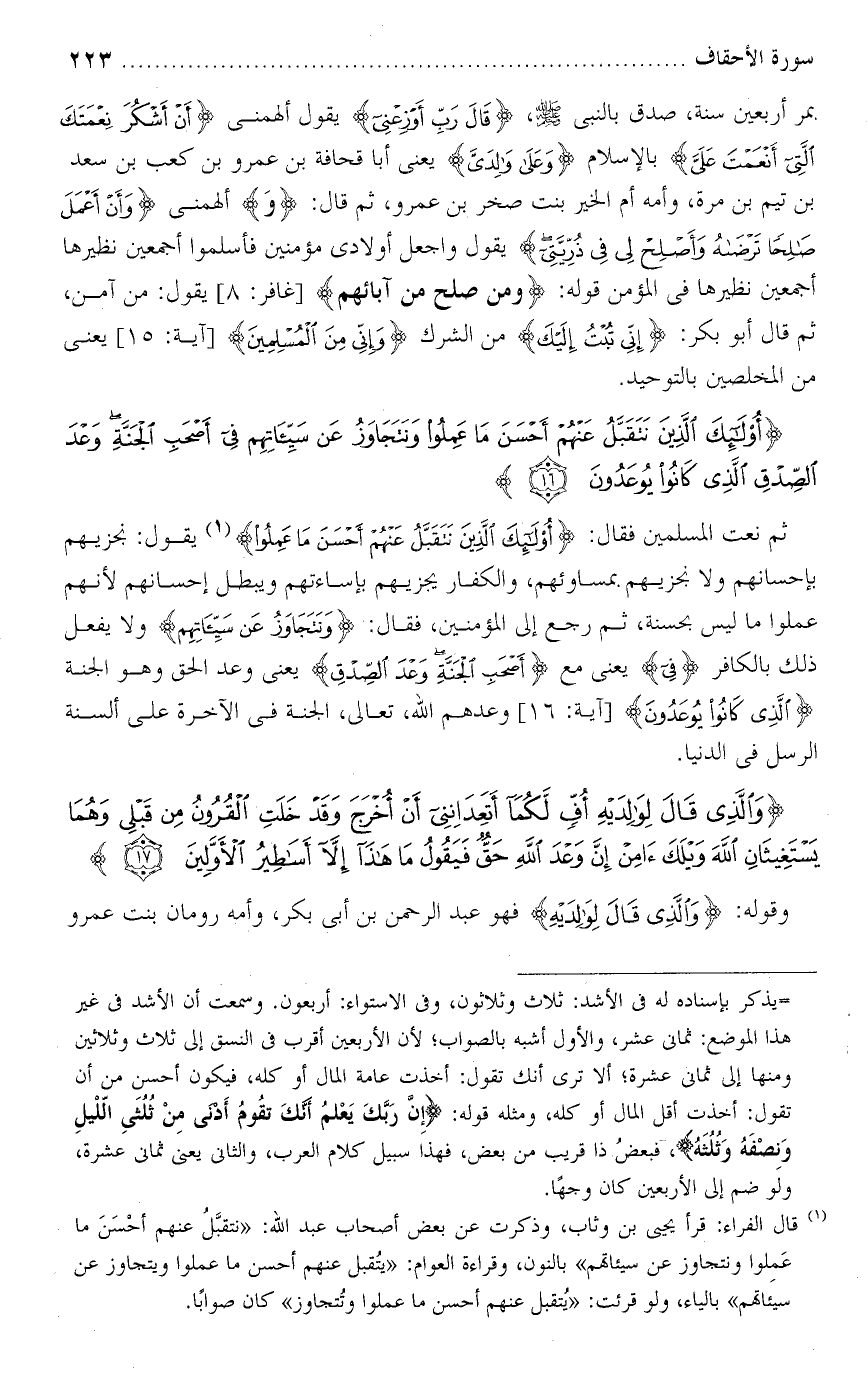 سورة الأحقاف ........................................................................ ٢٢٣
بمر أربعين سنة، صدق بالنبى ﷺ، ﴿قَالَ رَبِّ أَوْزِعْنِىٓ﴾ يقول ألهمنـى ﴿أَنْ أَشْكُرَ نِعْمَتَكَ
ٱلَّتِىٓ أَنْعَمْتَ عَلَىَّ﴾ بالإسلام ﴿وَعَلَىٰ وَٰلِدَىَّ﴾ يعنى أبا قحافة بن عمرو بن كعب بن سعد
بن تيم بن مرة، وأمه أم الخير بنت صخر بن عمرو، ثم قال: ﴿وَ﴾ ألهمنى ﴿وَأَنْ أَعْمَلَ
صَٰلِحًا تَرْضَىٰهُ وَأَصْلِحْ لِى فِى ذُرِّيَّتِىٓ﴾ يقول واجعل أولادى مؤمنين فأسلموا أجمعين نظيرها
أجمعين نظيرها فى المؤمن قوله: ﴿ومن صلح من آبائهم﴾ [غافر: ٨] يقول: من آمـن،
ثم قال أبو بكر: ﴿إِنِّى تُبْتُ إِلَيْكَ﴾ من الشرك ﴿وَإِنِّى مِنَ ٱلْمُسْلِمِينَ﴾ [آيـة: ١٥] يعنـى
من المخلصين بالتوحيد.
﴿أُو۟لَٰٓئِكَ ٱلَّذِينَ نَتَقَبَّلُ عَنْهُمْ أَحْسَنَ مَا عَمِلُوا۟ وَنَتَجَاوَزُ عَن سَيِّـَٔاتِهِمْ فِىٓ أَصْحَٰبِ ٱلْجَنَّةِ ۖ وَعْدَ
ٱلصِّدْقِ ٱلَّذِى كَانُوا۟ يُوعَدُونَ ١٦ ﴾
ثم نعت المسلمين فقال: ﴿أُو۟لَٰٓئِكَ ٱلَّذِينَ نَتَقَبَّلُ عَنْهُمْ أَحْسَنَ مَا عَمِلُوا۟﴾(١) يقـول: نجزيـهم
بإحسانهم ولا نجزيـهم بمساوئهم، والكفار يجزيـهم بإساءتهم ويبطـل إحسـانهم لأنـهم
عملوا ما ليس بحسنة، ثـم رجـع إلى المؤمنـين، فقـال: ﴿وَنَتَجَاوَزُ عَن سَيِّـَٔاتِهِمْ﴾ ولا يفعـل
ذلك بالكافر ﴿فِىٓ﴾ يعنى مع ﴿أَصْحَٰبِ ٱلْجَنَّةِ ۖ وَعْدَ ٱلصِّدْقِ﴾ يعنى وعد الحق وهـو الجنة
﴿ٱلَّذِى كَانُوا۟ يُوعَدُونَ﴾ [آية: ١٦] وعدهـم الله، تعـالى، الجنة فـى الآخـرة علـى ألسـنة
الرسل فى الدنيا.
﴿وَٱلَّذِى قَالَ لِوَٰلِدَيْهِ أُفٍّ لَّكُمَآ أَتَعِدَانِنِىٓ أَنْ أُخْرَجَ وَقَدْ خَلَتِ ٱلْقُرُونُ مِن قَبْلِى وَهُمَا
يَسْتَغِيثَانِ ٱللَّهَ وَيْلَكَ ءَامِنْ إِنَّ وَعْدَ ٱللَّهِ حَقٌّ فَيَقُولُ مَا هَٰذَآ إِلَّآ أَسَٰطِيرُ ٱلْأَوَّلِينَ ١٧ ﴾
وقوله: ﴿وَٱلَّذِى قَالَ لِوَٰلِدَيْهِ﴾ فهو عبد الرحمن بن أبى بكر، وأمه رومان بنت عمرو
=يذكر بإسناده له فى الأشد: ثلاث وثلاثون، وفى الاستواء: أربعون. وسمعت أن الأشد فى غير
هذا الموضع: ثمانى عشر، والأول أشبه بالصواب؛ لأن الأربعين أقرب فى النسق إلى ثلاث وثلاثين
ومنها إلى ثمانى عشرة؛ ألا ترى أنك تقول: أخذت عامة المال أو كله، فيكون أحسن من أن
تقول: أخذت أقل المال أو كله، ومثله قوله: ﴿إِنَّ رَبَّكَ يَعْلَمُ أَنَّكَ تَقُومُ أَدْنَى مِنْ ثُلُثَيِ الّلَيلِ
وَنِصْفَهُ وَثُلُثَهُ﴾، فبعضُ ذا قريب من بعض، فهذا سبيل كلام العرب، والثانى يعنى ثمانى عشرة،
ولو ضم إلى الأربعين كان وجهًا.
(١) قال الفراء: قرأ يحيى بن وثاب، وذكرت عن بعض أصحاب عبد الله: «نتقبَّلُ عنهم أحْسَنَ ما
عَمِلوا ونتجاوز عن سيئاتهم» بالنون، وقراءة العوام: «يُتقبل عنهم أحسن ما عملوا ويتجاوز عن
سيئاتهم» بالياء، ولو قرئت: «يُتقبل عنهم أحسن ما عملوا وتُتجاوز» كان صوابًا.